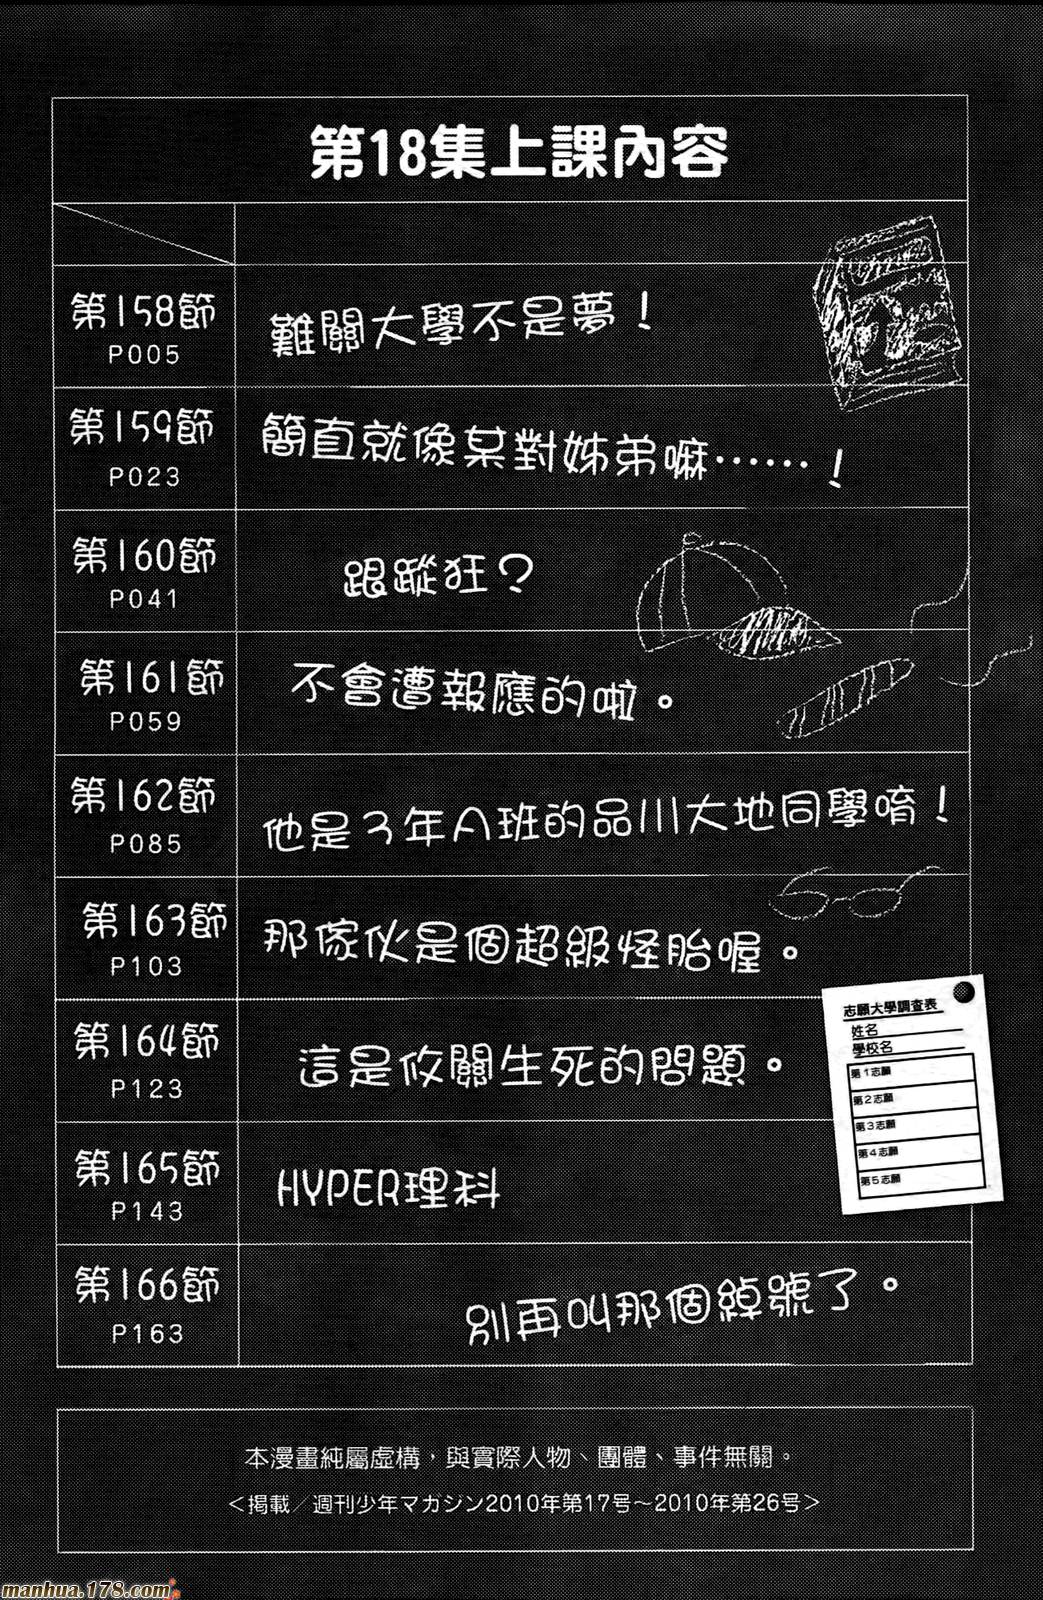 第18集上課內容
第158節
P005
難關大學不是夢！
第159節
P023
簡直就像某對姊弟嘛……！
第160節
P041
跟蹤狂？
第161節
P059
不會遭報應的啦。
第162節
P085
他是3年A班的品川大地同學唷！
第163節
P103
那傢伙是個超級怪胎喔。
志願大學調查表
姓名
學校名
第1志願
第2志願
第3志願
第4志願
第5志願
第164節
P123
這是攸關生死的問題。
第165節
P143
HYPER理科
第166節
P163
別再叫那個綽號了。
本漫畫純屬虛構，與實際人物、團體、事件無關。
＜掲載／週刊少年マガジン2010年第17号～2010年第26号＞
manhua.178.com